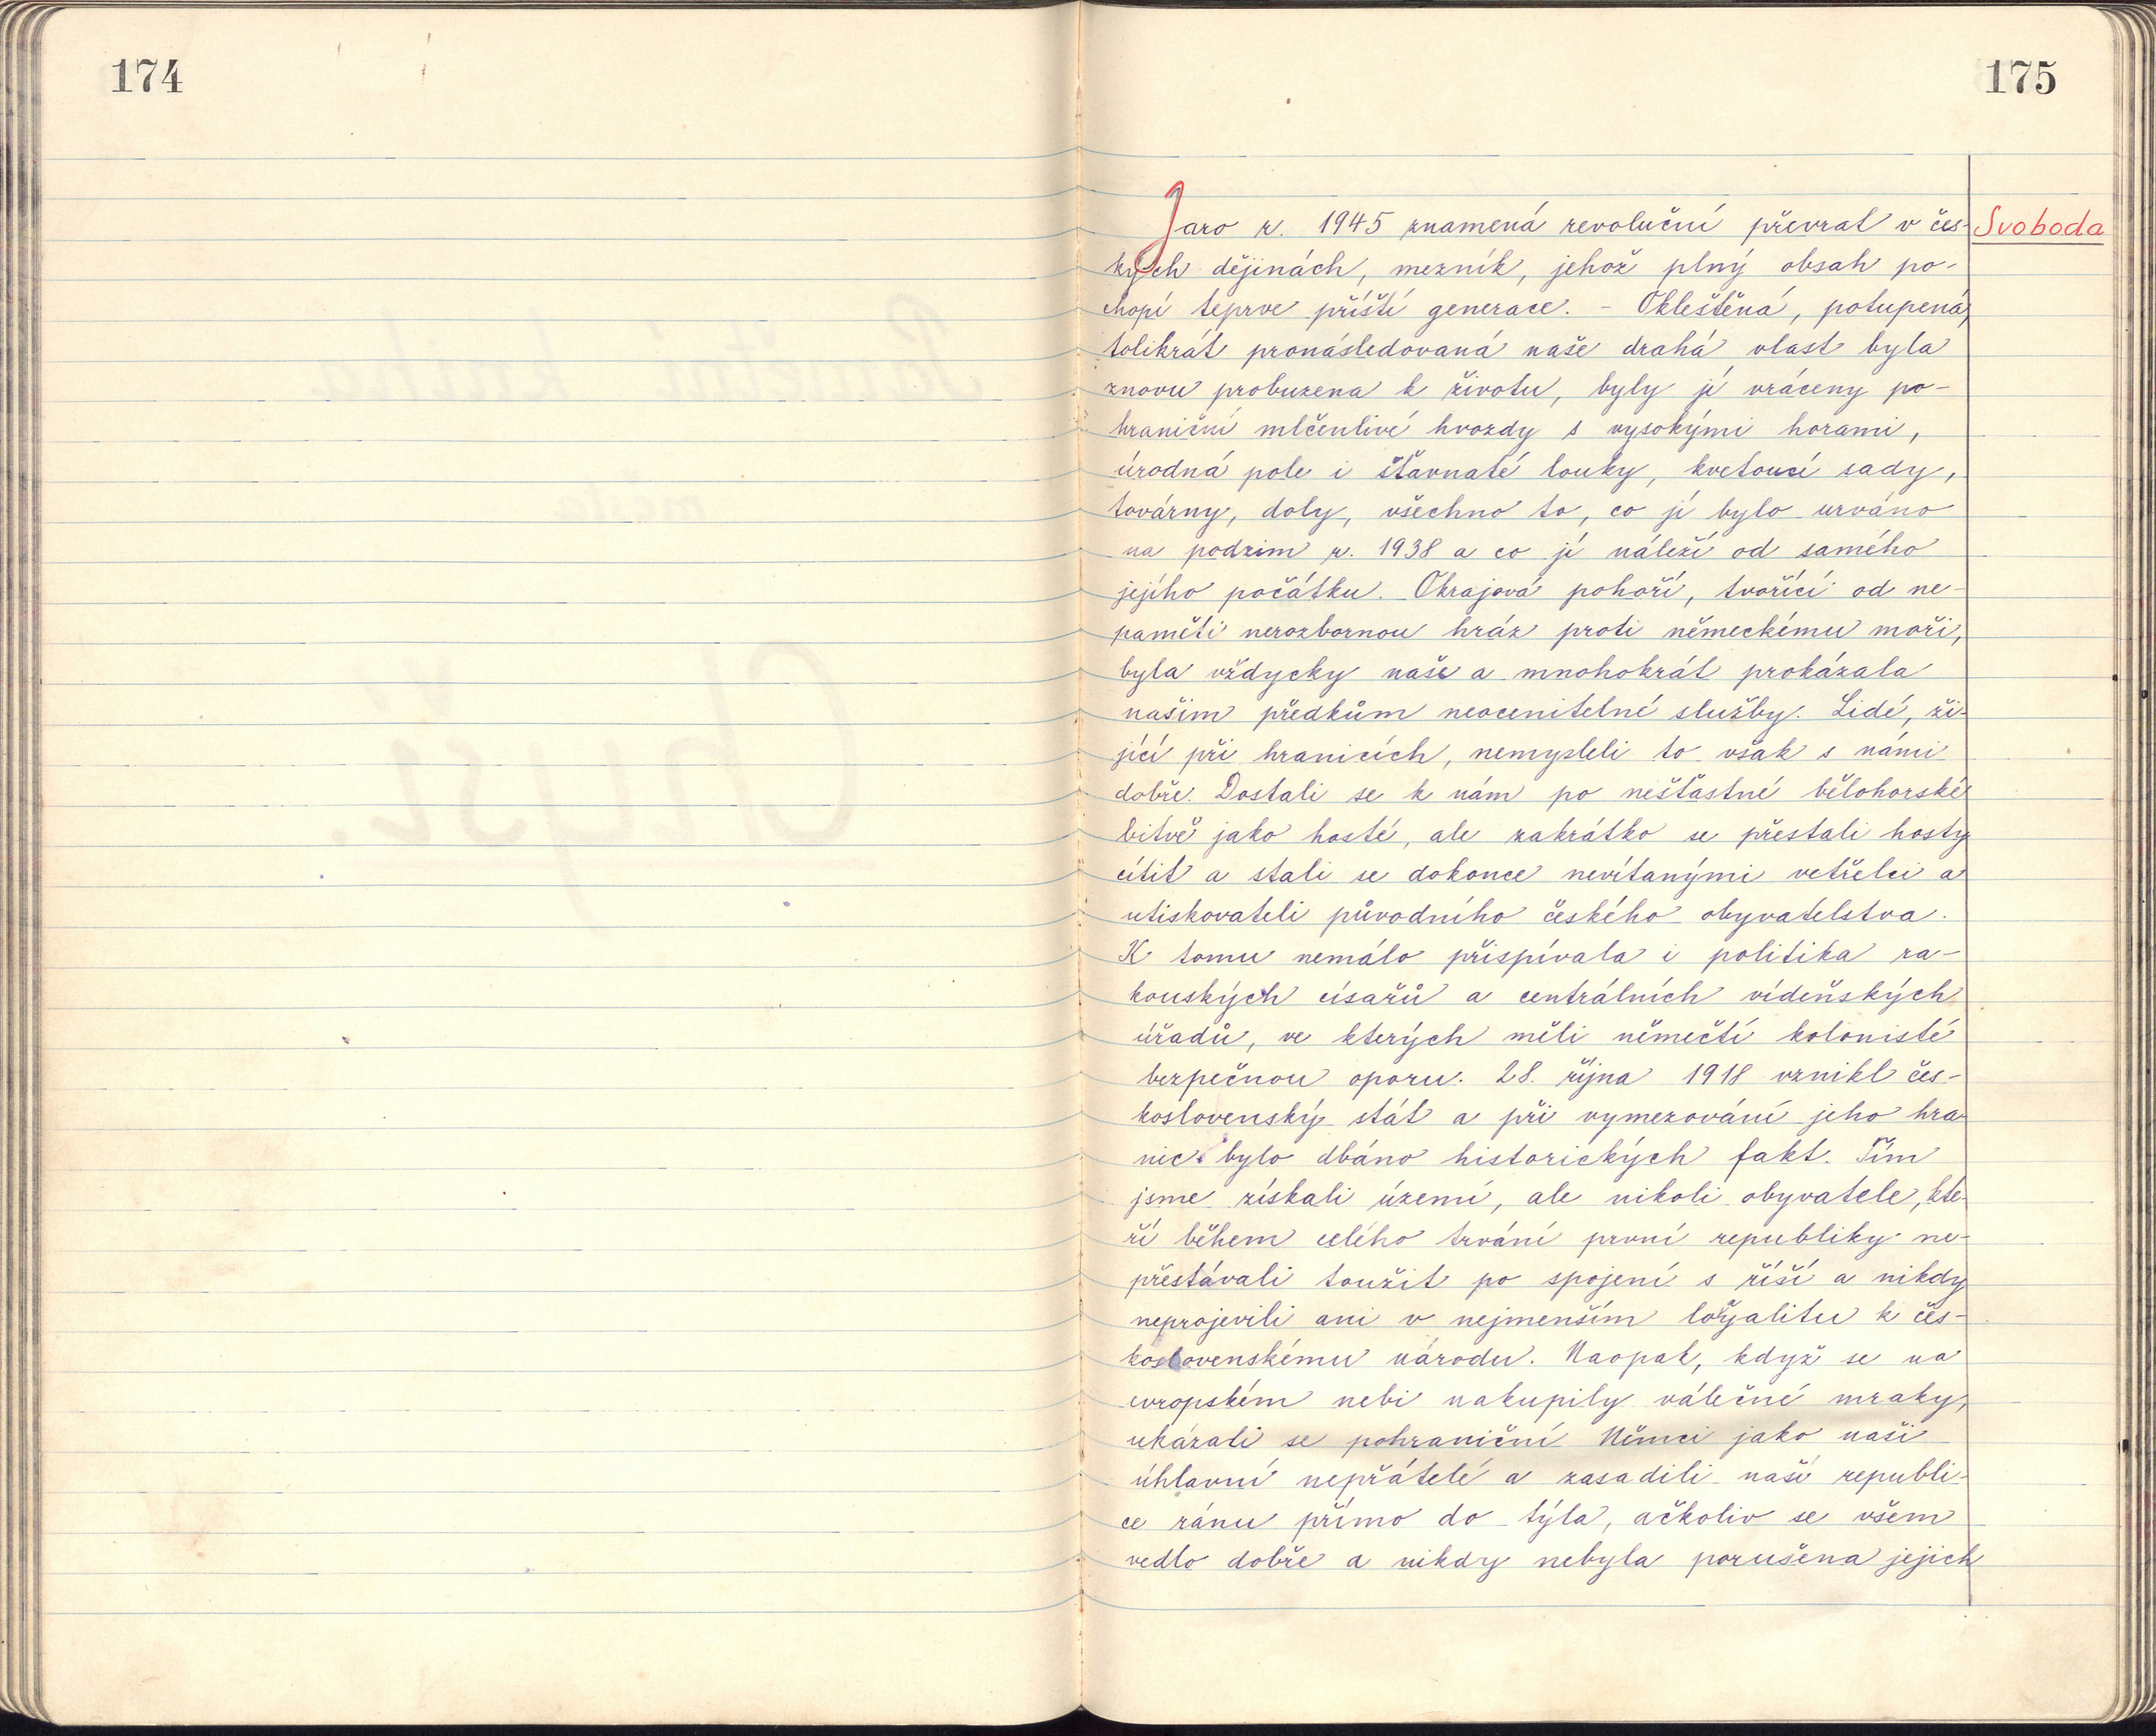 174
175
Jaro r. 1945 znamená revoluční převrat v čes-
Svoboda
kých dějinách, mezník, jehož plný obsah po-
chopí teprve příští generace. - Okleštěná, potupená,
tolikrát pronásledovaná naše drahá vlast byla
znovu probuzena k životu, byly jí vráceny po-
hraniční mlčenlivé hvozdy s vysokými horami,
úrodná pole i šťavnaté louky, kvetoucí sady,
továrny, doly, všechno to, co jí bylo urváno
na podzim r. 1938 a co jí náleží od samého
jejího počátku. Okrajová pohoří, tvořící od ne-
paměti nerozbornou hráz proti německému moři,
byla vždycky naše a mnohokrát prokázala
našim předkům neocenitelné služby. Lidé, ži-
jící při hranicích, nemysleli to však s námi
dobře. Dostali se k nám po nešťastné bělohorské
bitvě jako hosté, ale zakrátko se přestali hosty
cítit a stali se dokonce nevítanými vetřelci a
utiskovateli původního českého obyvatelstva.
K tomu nemálo přispívala i politika ra-
kouských císařů a centrálních vídeňských
úřadů, ve kterých měli němečtí kolonisté
bezpečnou oporu. 28. října 1918 vznikl čes-
koslovenský stát a při vymezování jeho hra-
nic bylo dbáno historických fakt. Tím
jsme získali území, ale nikoli obyvatele, kte-
ří během celého trvání první republiky ne-
přestávali toužit po spojení s říší a nikdy
neprojevili ani v nejmenším loyalitu k čes-
koslovenskému národu. Naopak, když se na
evropském nebi nakupily válečné mraky,
ukázali se pohraniční Němci jako naši
úhlavní nepřátelé a zasadili naší republi-
ce ránu přímo do týla, ačkoliv se všem
vedlo dobře a nikdy nebyla porušena jejich